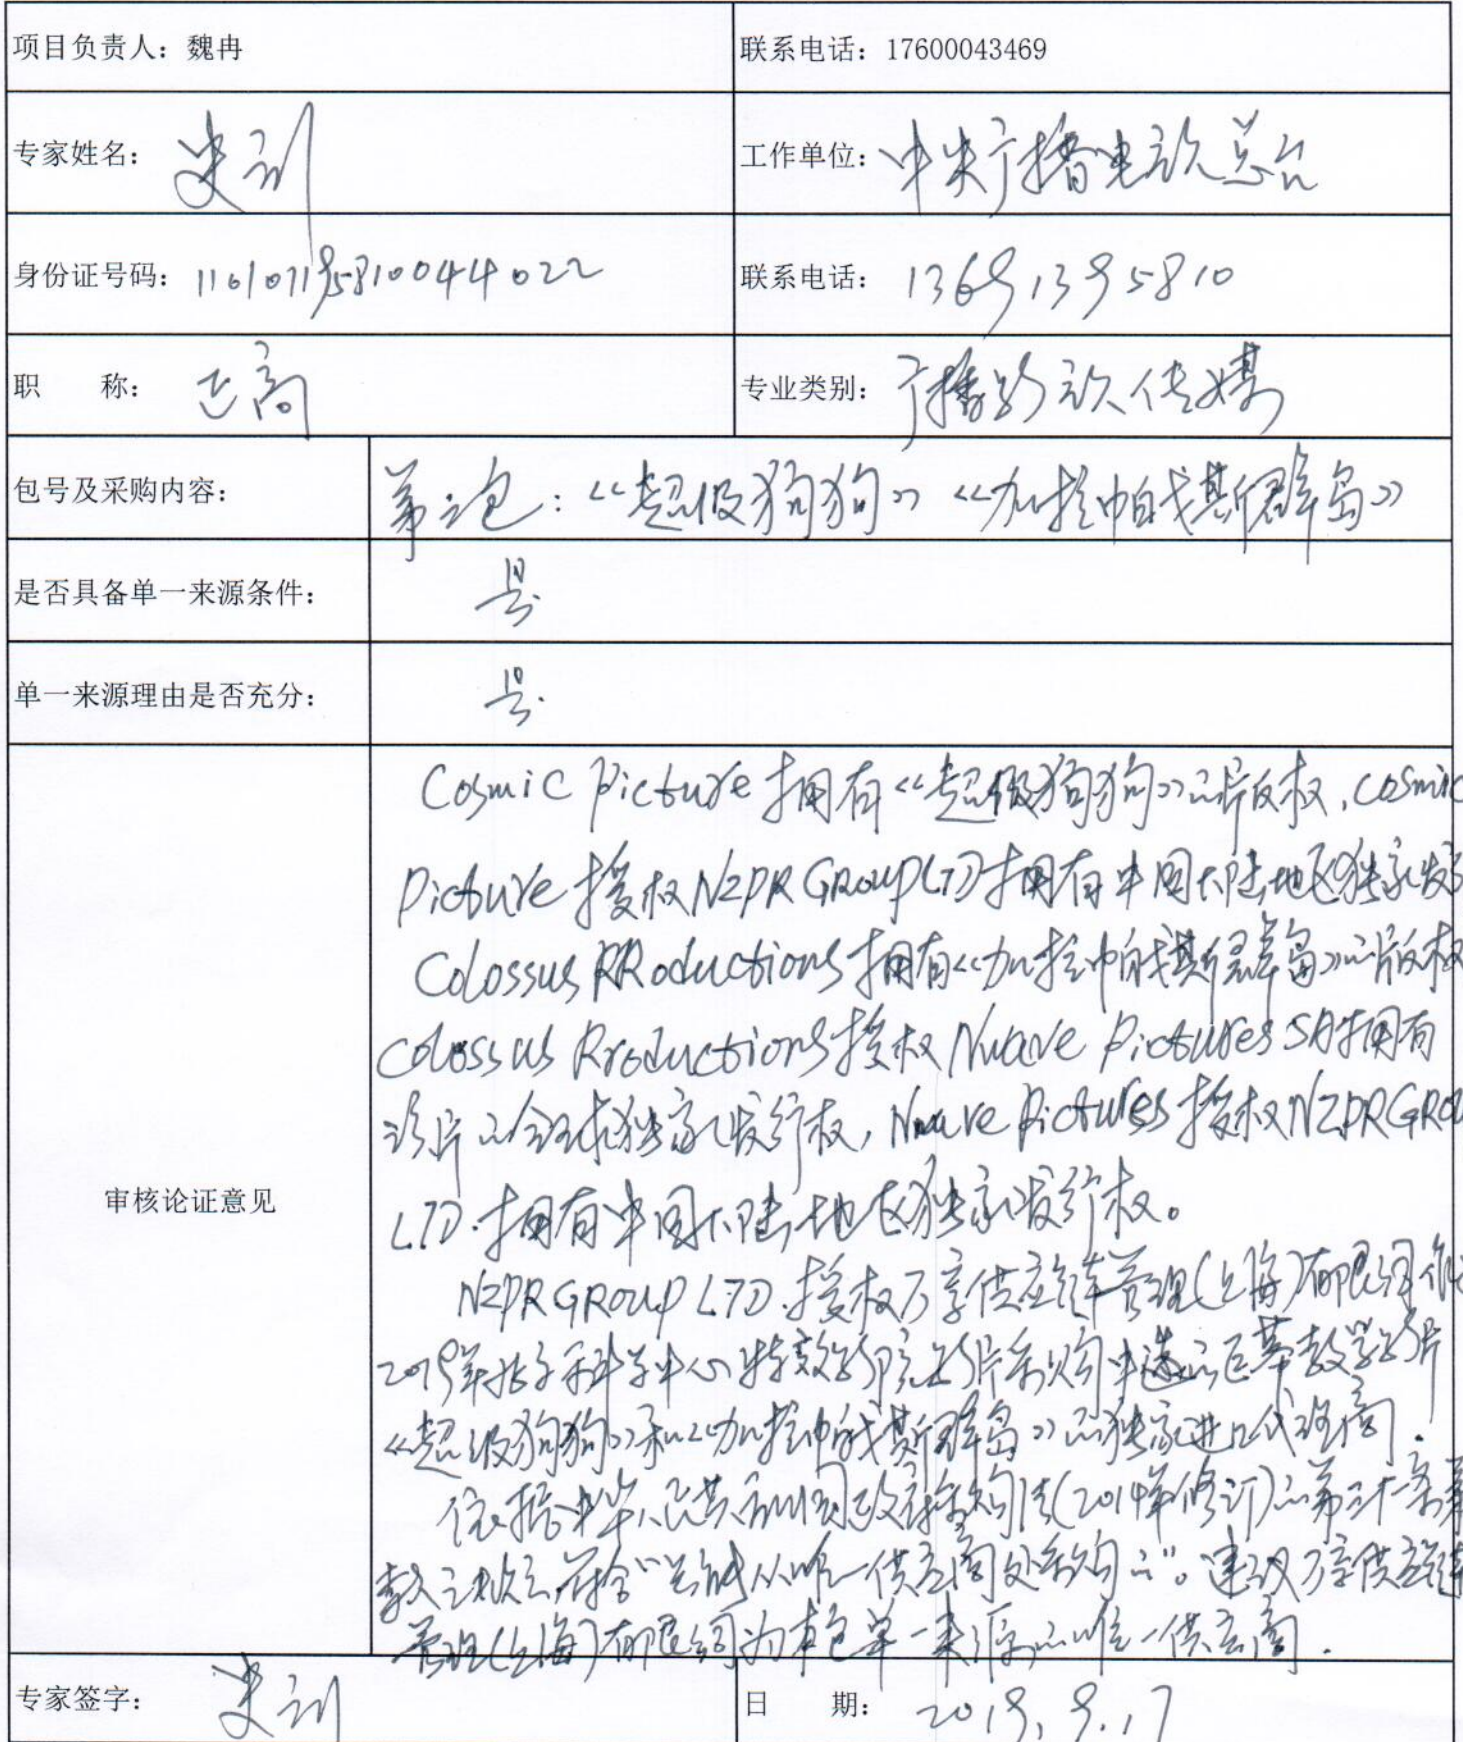 项目负责人：魏冉
联系电话：17600043469
专家姓名：史训
工作单位：中央广播电视总台
身份证号码：110107195810044022
联系电话：13691395810
职 称：正高
专业类别：广播影视传媒
包号及采购内容：第二包：《超级狗狗》《加拉帕戈斯群岛》
是否具备单一来源条件：是
单一来源理由是否充分：是.
审核论证意见
Cosmic Picture 拥有《超级狗狗》的版权，Cosmic
Picture 授权NZPR GROUP LTD拥有中国大陆地区独家发
Colossus PRoductions拥有《加拉帕戈斯群岛》的版权
Colossus Productions授权 Nwave Pictures SA拥有
该片的全球独家发行权，Nwave Pictures授权NZPR GROU
LTD.拥有中国大陆地区独家发行权。
NZPR GROUP LTD.授权万享供应链管理(上海)有限公司作
2019年张子科学中心特效影院影片采购中选的巨幕数字影片
《超级狗狗》和《加拉帕戈斯群岛》的独家进口代理商.
依据中华人民共和国政府采购法(2014年修订)的第三十一条第
款之规定,符合"只能从唯一供应商处采购的"。建议万享供应链
管理(上海)有限公司为本包单一来源的唯一供应商.
专家签字：史训
日 期：2019.9.17